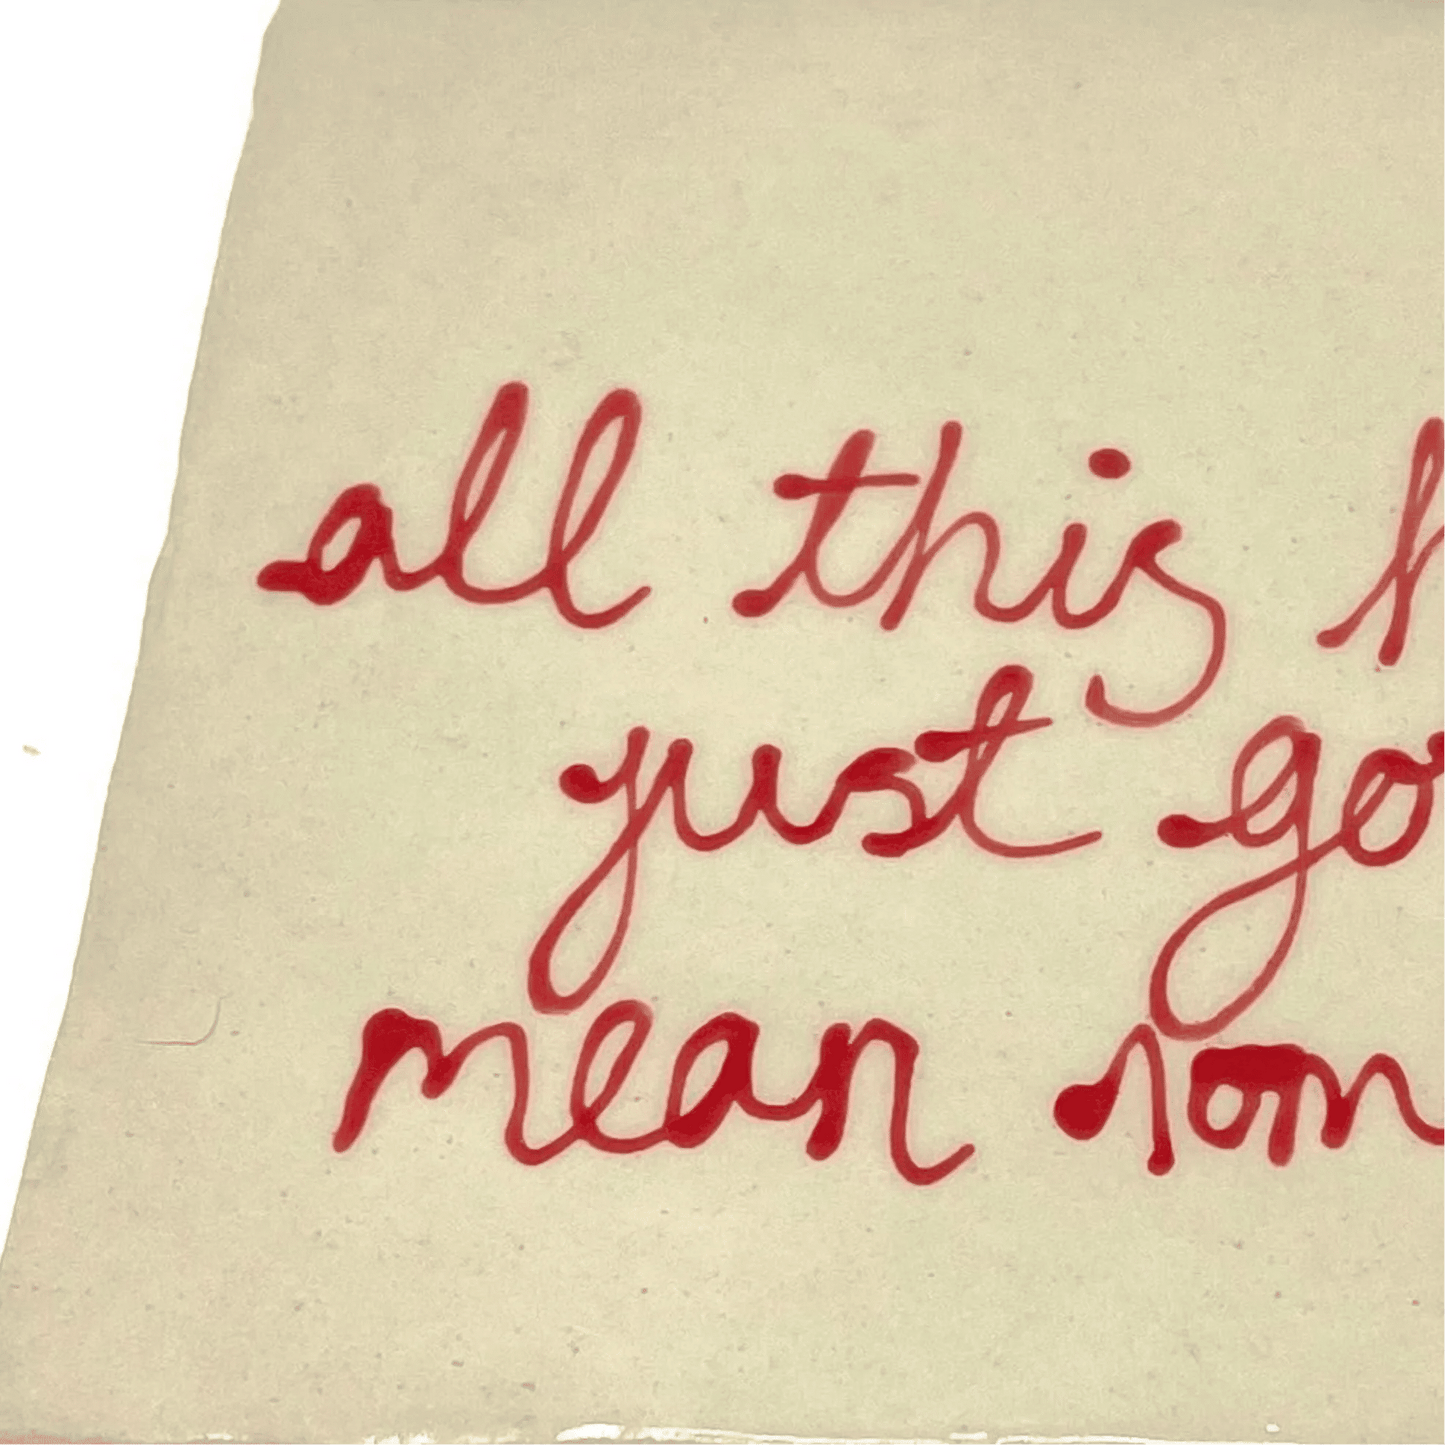 all this h
just go
mean som